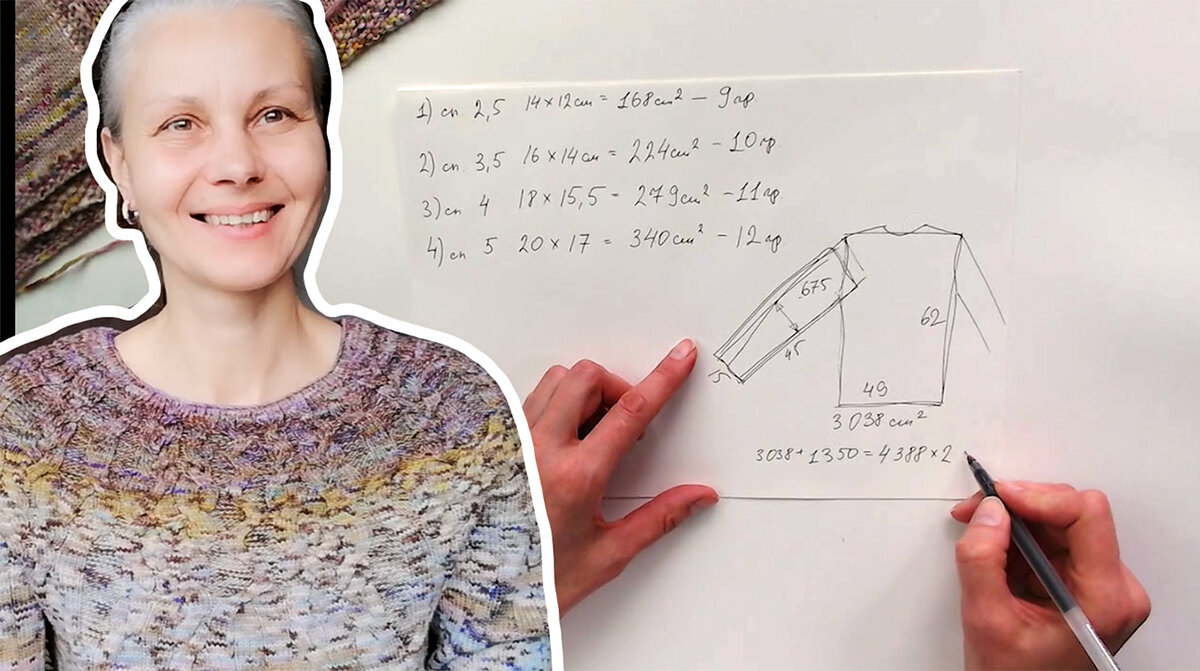 1) сп. 2,5 14×12см = 168см² – 9гр.
2) сп. 3,5 16×14см = 224см² – 10гр.
3) сп 4 18×15,5 = 279см² – 11гр.
4) сп 5 20×17 = 340см² – 12гр.
675
62
45
15
49
3038 см²
3038+1350=4388×2